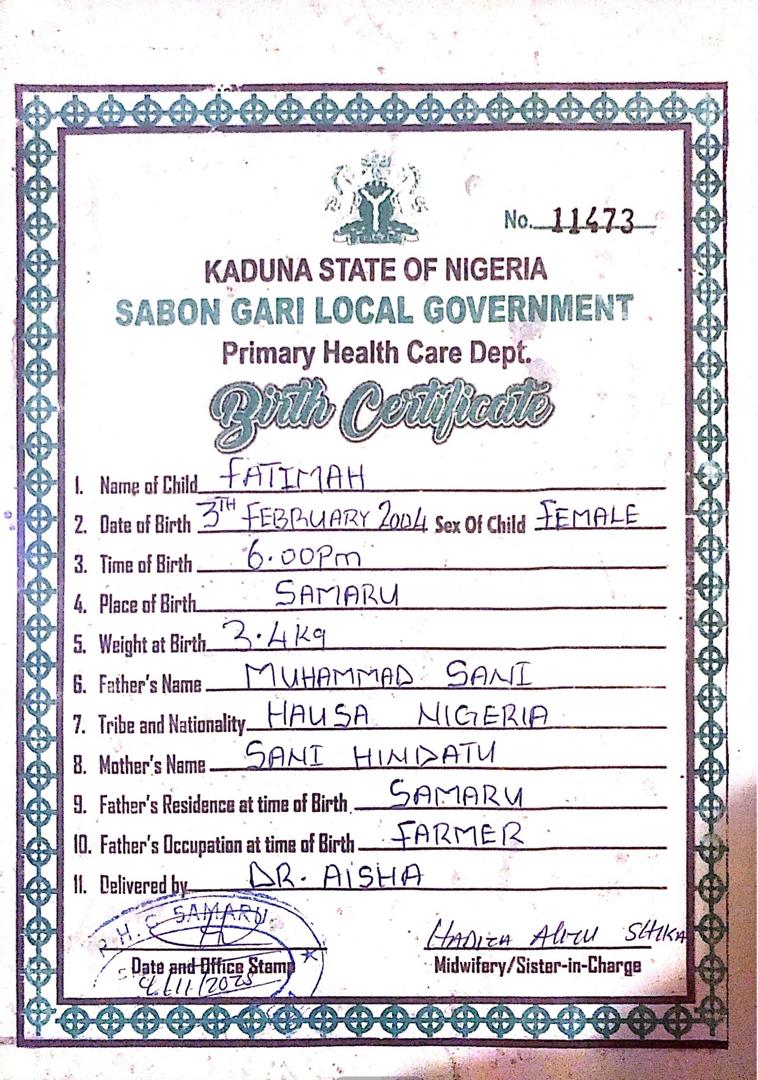 No. 11473
KADUNA STATE OF NIGERIA
SABON GARI LOCAL GOVERNMENT
Primary Health Care Dept.
Birth Certificate
1. Name of Child FATIMAH
2. Date of Birth 3TH FEBRUARY 2004 Sex Of Child FEMALE
3. Time of Birth 6.00Pm
4. Place of Birth SAMARU
5. Weight at Birth 3.4Kg
6. Father's Name MUHAMMAD SANI
7. Tribe and Nationality HAUSA NIGERIA
8. Mother's Name SANI HINDATU
9. Father's Residence at time of Birth SAMARU
10. Father's Occupation at time of Birth FARMER
11. Delivered by DR. AISHA
P.H.C SAMARU
HADIZA ALIYU SHIKA
Date and Office Stamp
Midwifery/Sister-in-Charge
4/11/2025